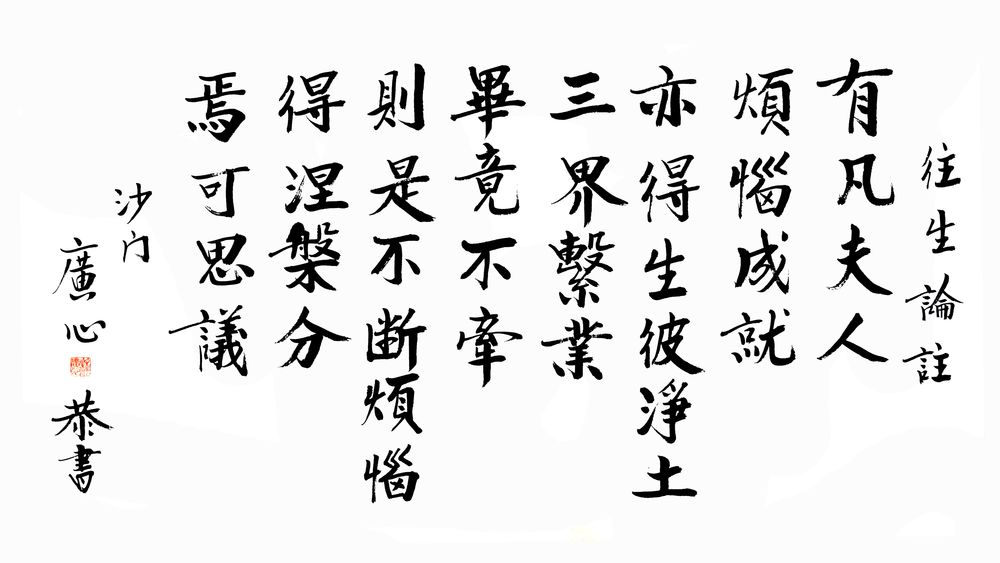 往生論註
有凡夫人
煩惱成就
亦得生彼淨土
三界繫業
畢竟不牽
則是不断煩惱
得涅槃分
焉可思議
沙门
廣心
恭書